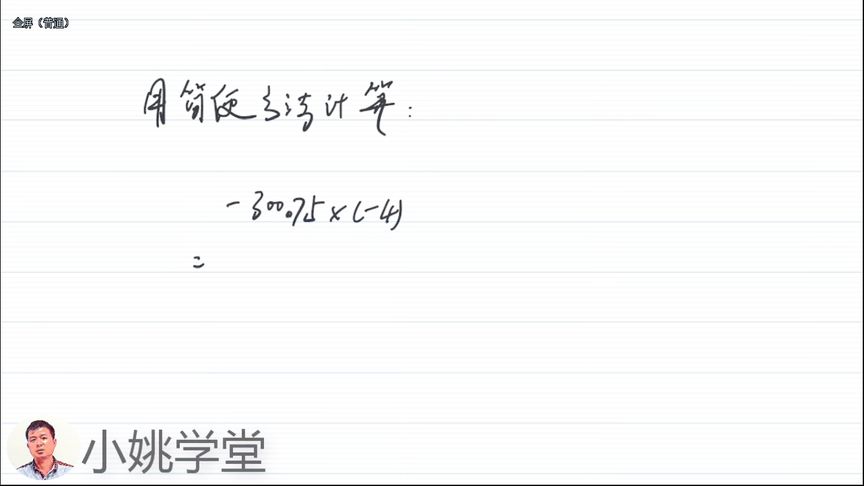 全屏（普通）
用简便方法计算：
-300.75×(-4)
=
小姚学堂